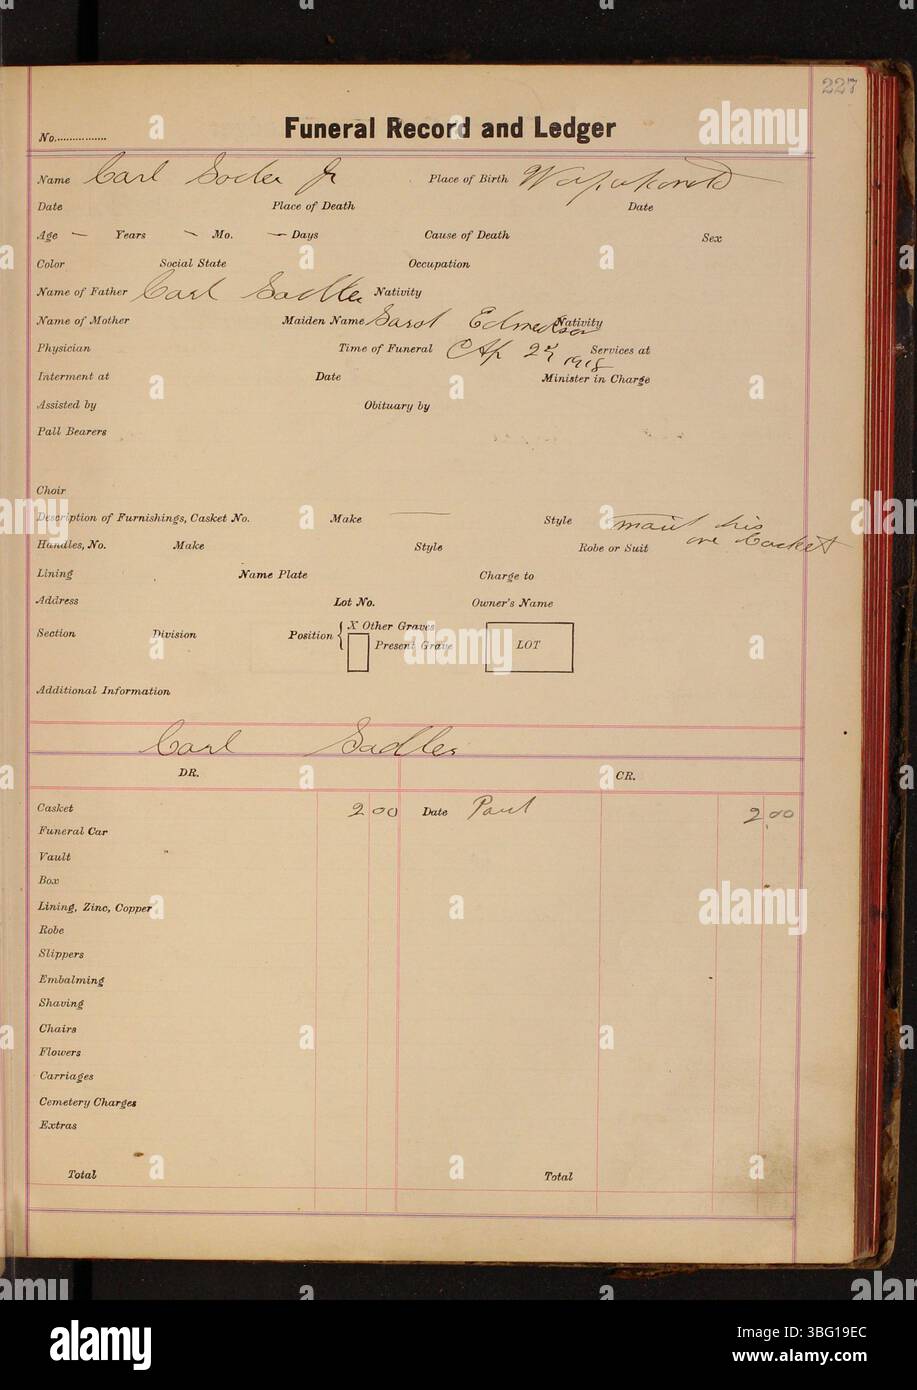 227
Funeral Record and Ledger
No................
Name Carl Sadler Jr Place of Birth Wapakoneta
Date Place of Death Date
Age — Years — Mo. — Days Cause of Death Sex
Color Social State Occupation
Name of Father Carl Sadler Nativity
Name of Mother Maiden Name Sarol Edmerson Nativity
Physician Time of Funeral Ap 27 1918 Services at
Interment at Date Minister in Charge
Assisted by Obituary by
Pall Bearers
Choir
Description of Furnishings, Casket No. Make — Style his
Handles, No. Make Style Robe or Suit Casket
Lining Name Plate Charge to
Address Lot No. Owner's Name
Section Division Position { X Other Graves
Present Grave LOT
Additional Information
Carl Sadler
DR. CR.
Casket 2 00 Date Paid 2.00
Funeral Car
Vault
Box
Lining, Zinc, Copper
Robe
Slippers
Embalming
Shaving
Chairs
Flowers
Carriages
Cemetery Charges
Extras
Total Total
alamy
alamy
Image ID: 3BG19EC
www.alamy.com